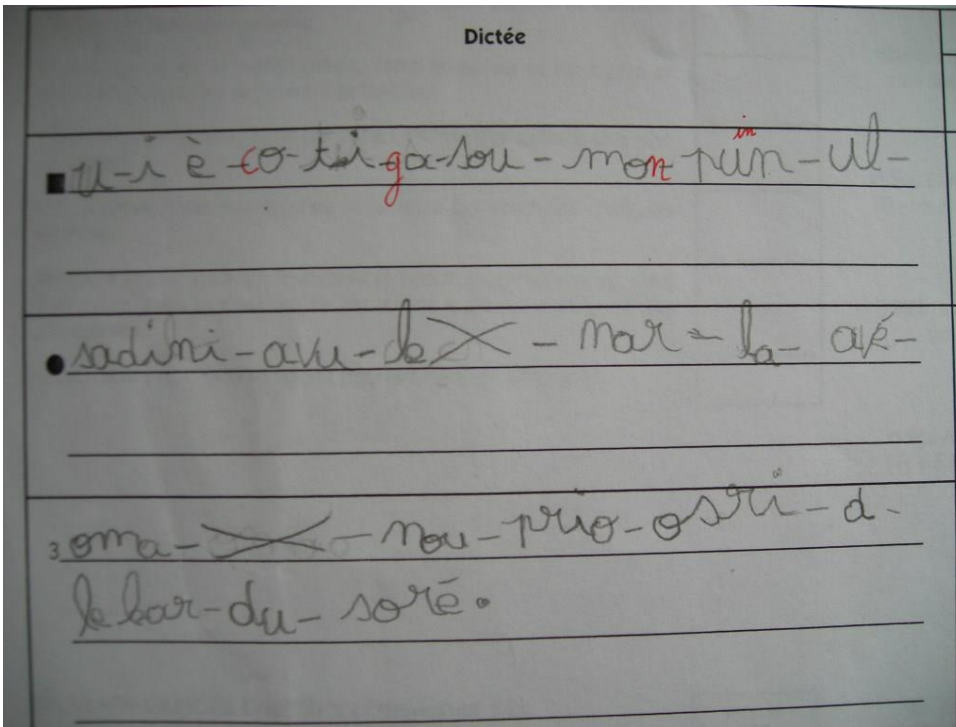 Dictée
u-i è co-tui-ga-sou-mon-pin-ul-
sadimi-avu-le - mar-la-avé-
3 oma- - mou-prio-osri-d-
le bar-du-soré.